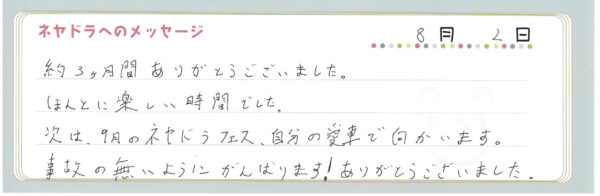 ネヤドラへのメッセージ
8月 2日
約3ヶ月間ありがとうございました。
ほんとに楽しい時間でした。
次は、9月のネヤドラフェス、自分の愛車で向かいます。
事故の無いようにがんばります!ありがとうございました。